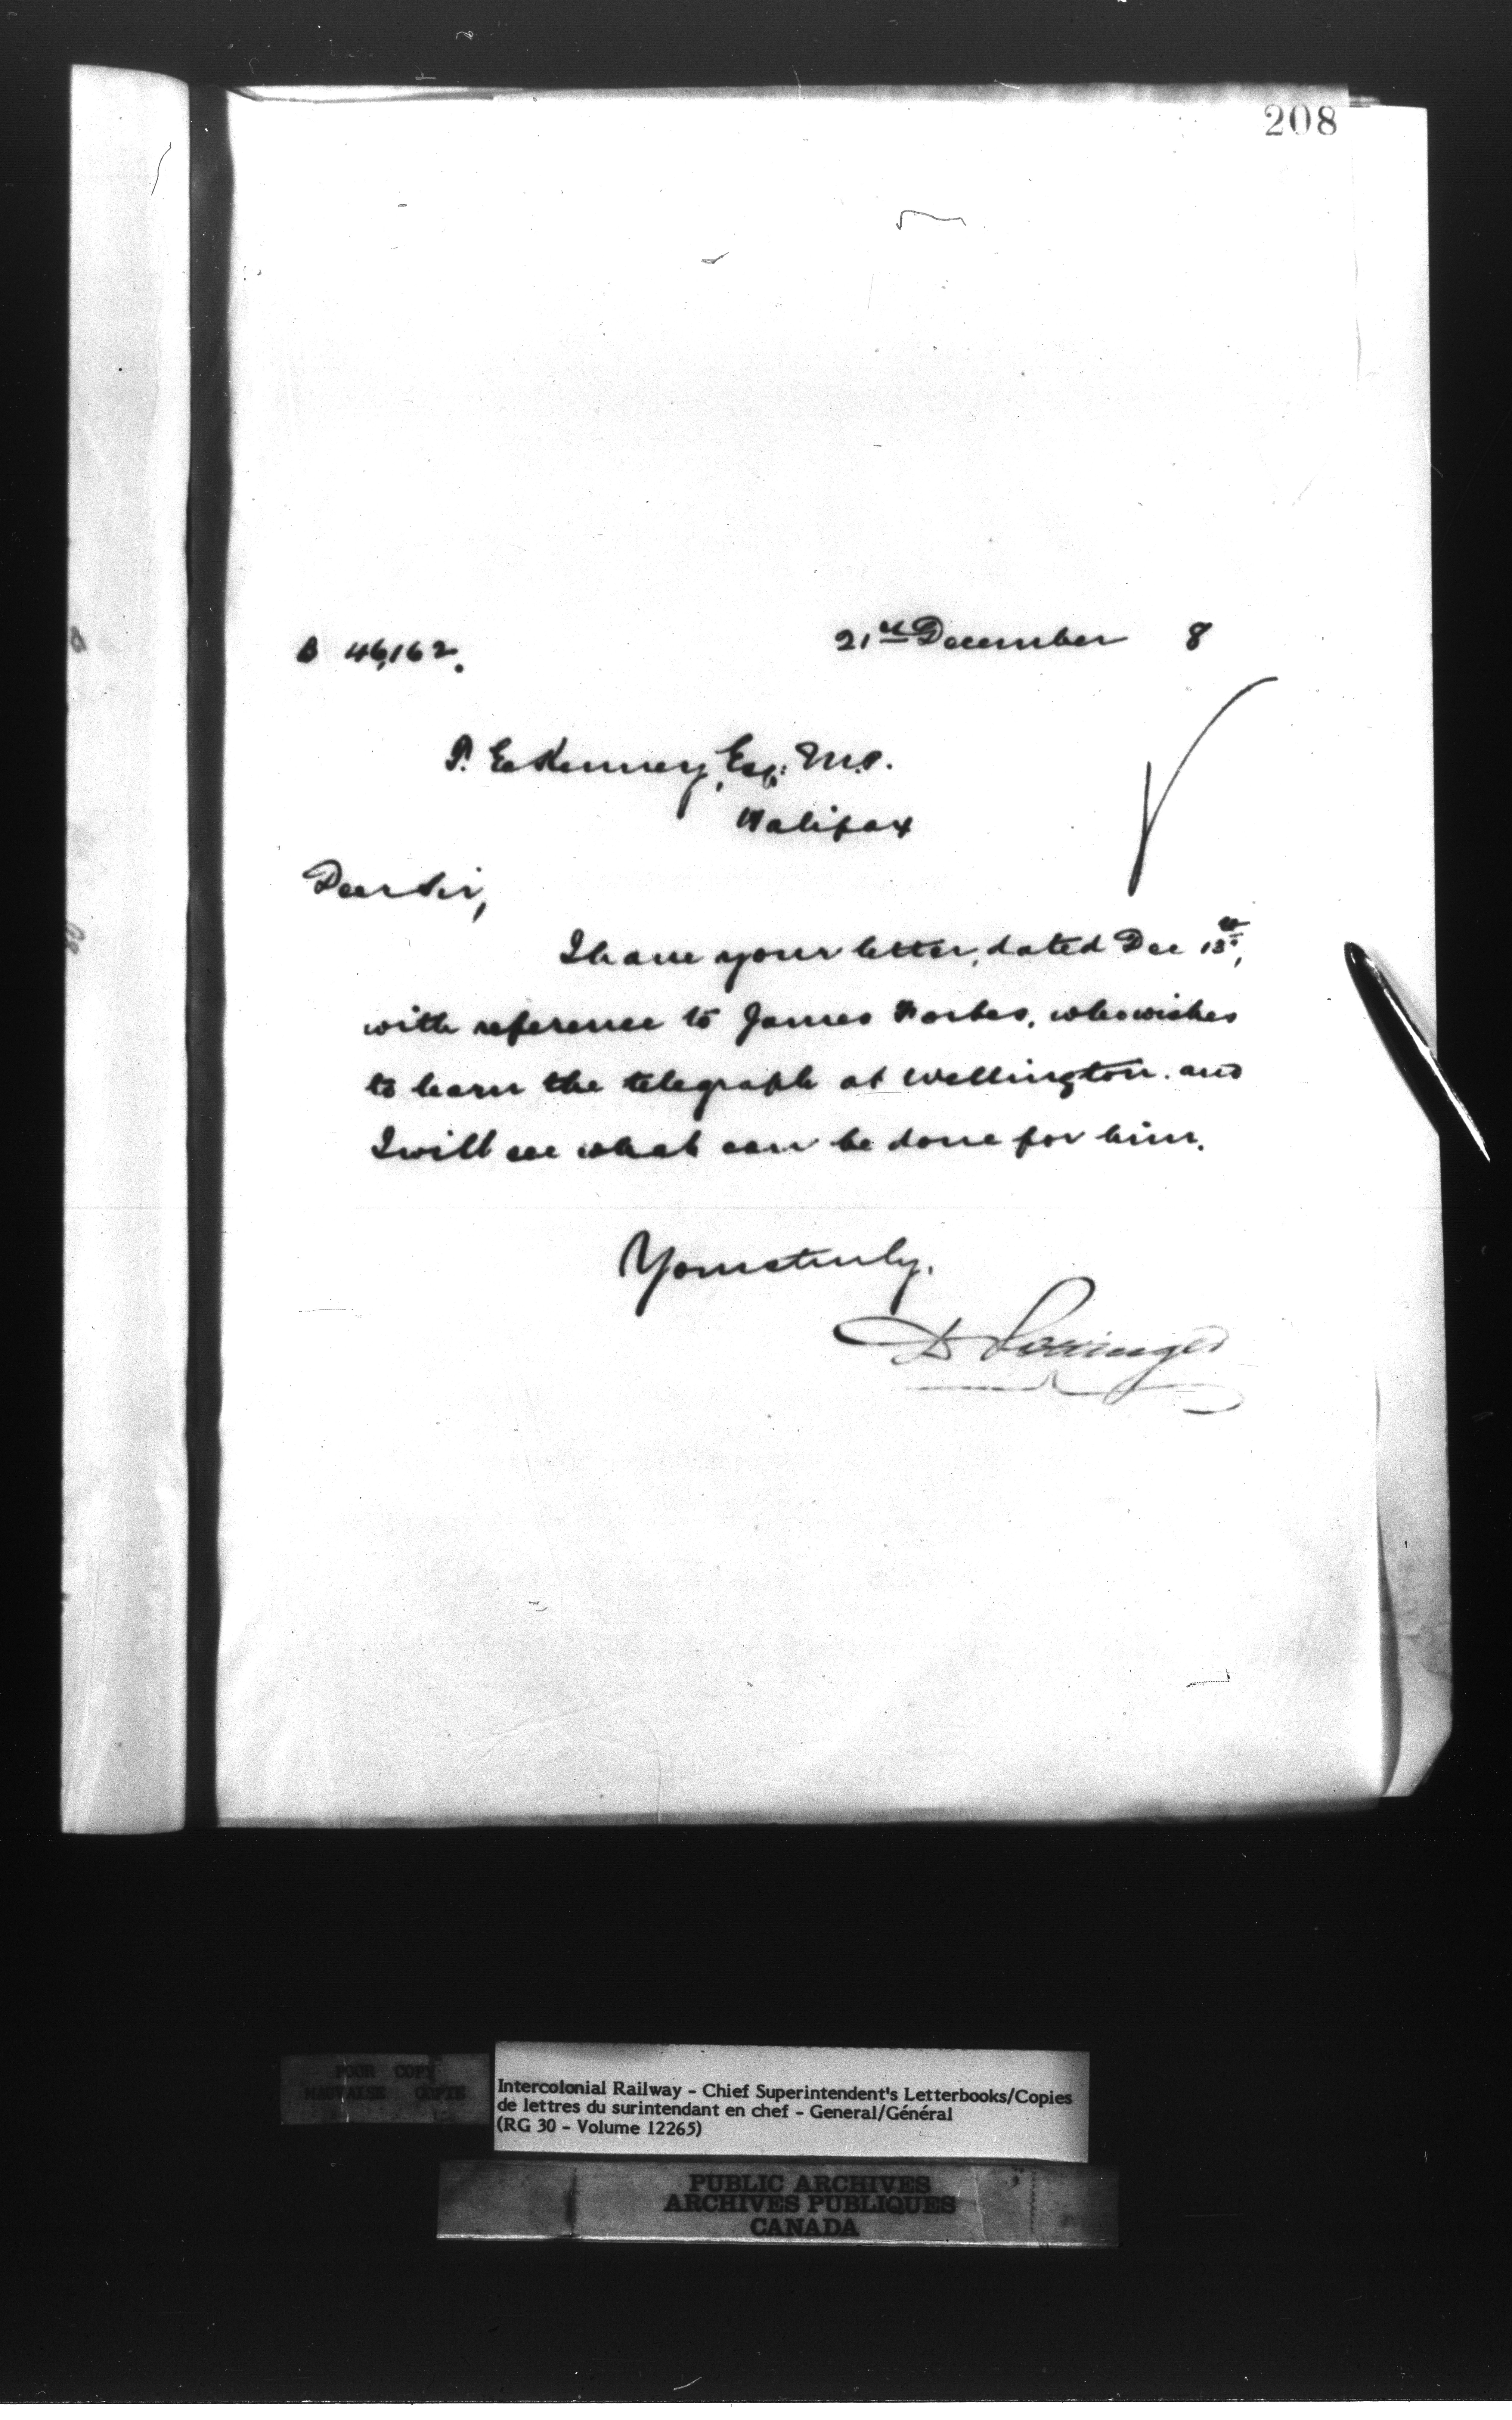 208
B 46,162.
21st December 8
T. E. Kenney, Esq: M.P.
Halifax
Dear Sir,
I have your letter, dated Dec 13th,
with reference to James Forbes, who wishes
to learn the telegraph at Wellington. and
I will see what can be done for him.
Yours truly,
D Pottinger
POOR COPY
MAUVAISE COPIE
Intercolonial Railway - Chief Superintendent's Letterbooks/Copies
de lettres du surintendant en chef - General/Général
(RG 30 - Volume 12265)
PUBLIC ARCHIVES
ARCHIVES PUBLIQUES
CANADA